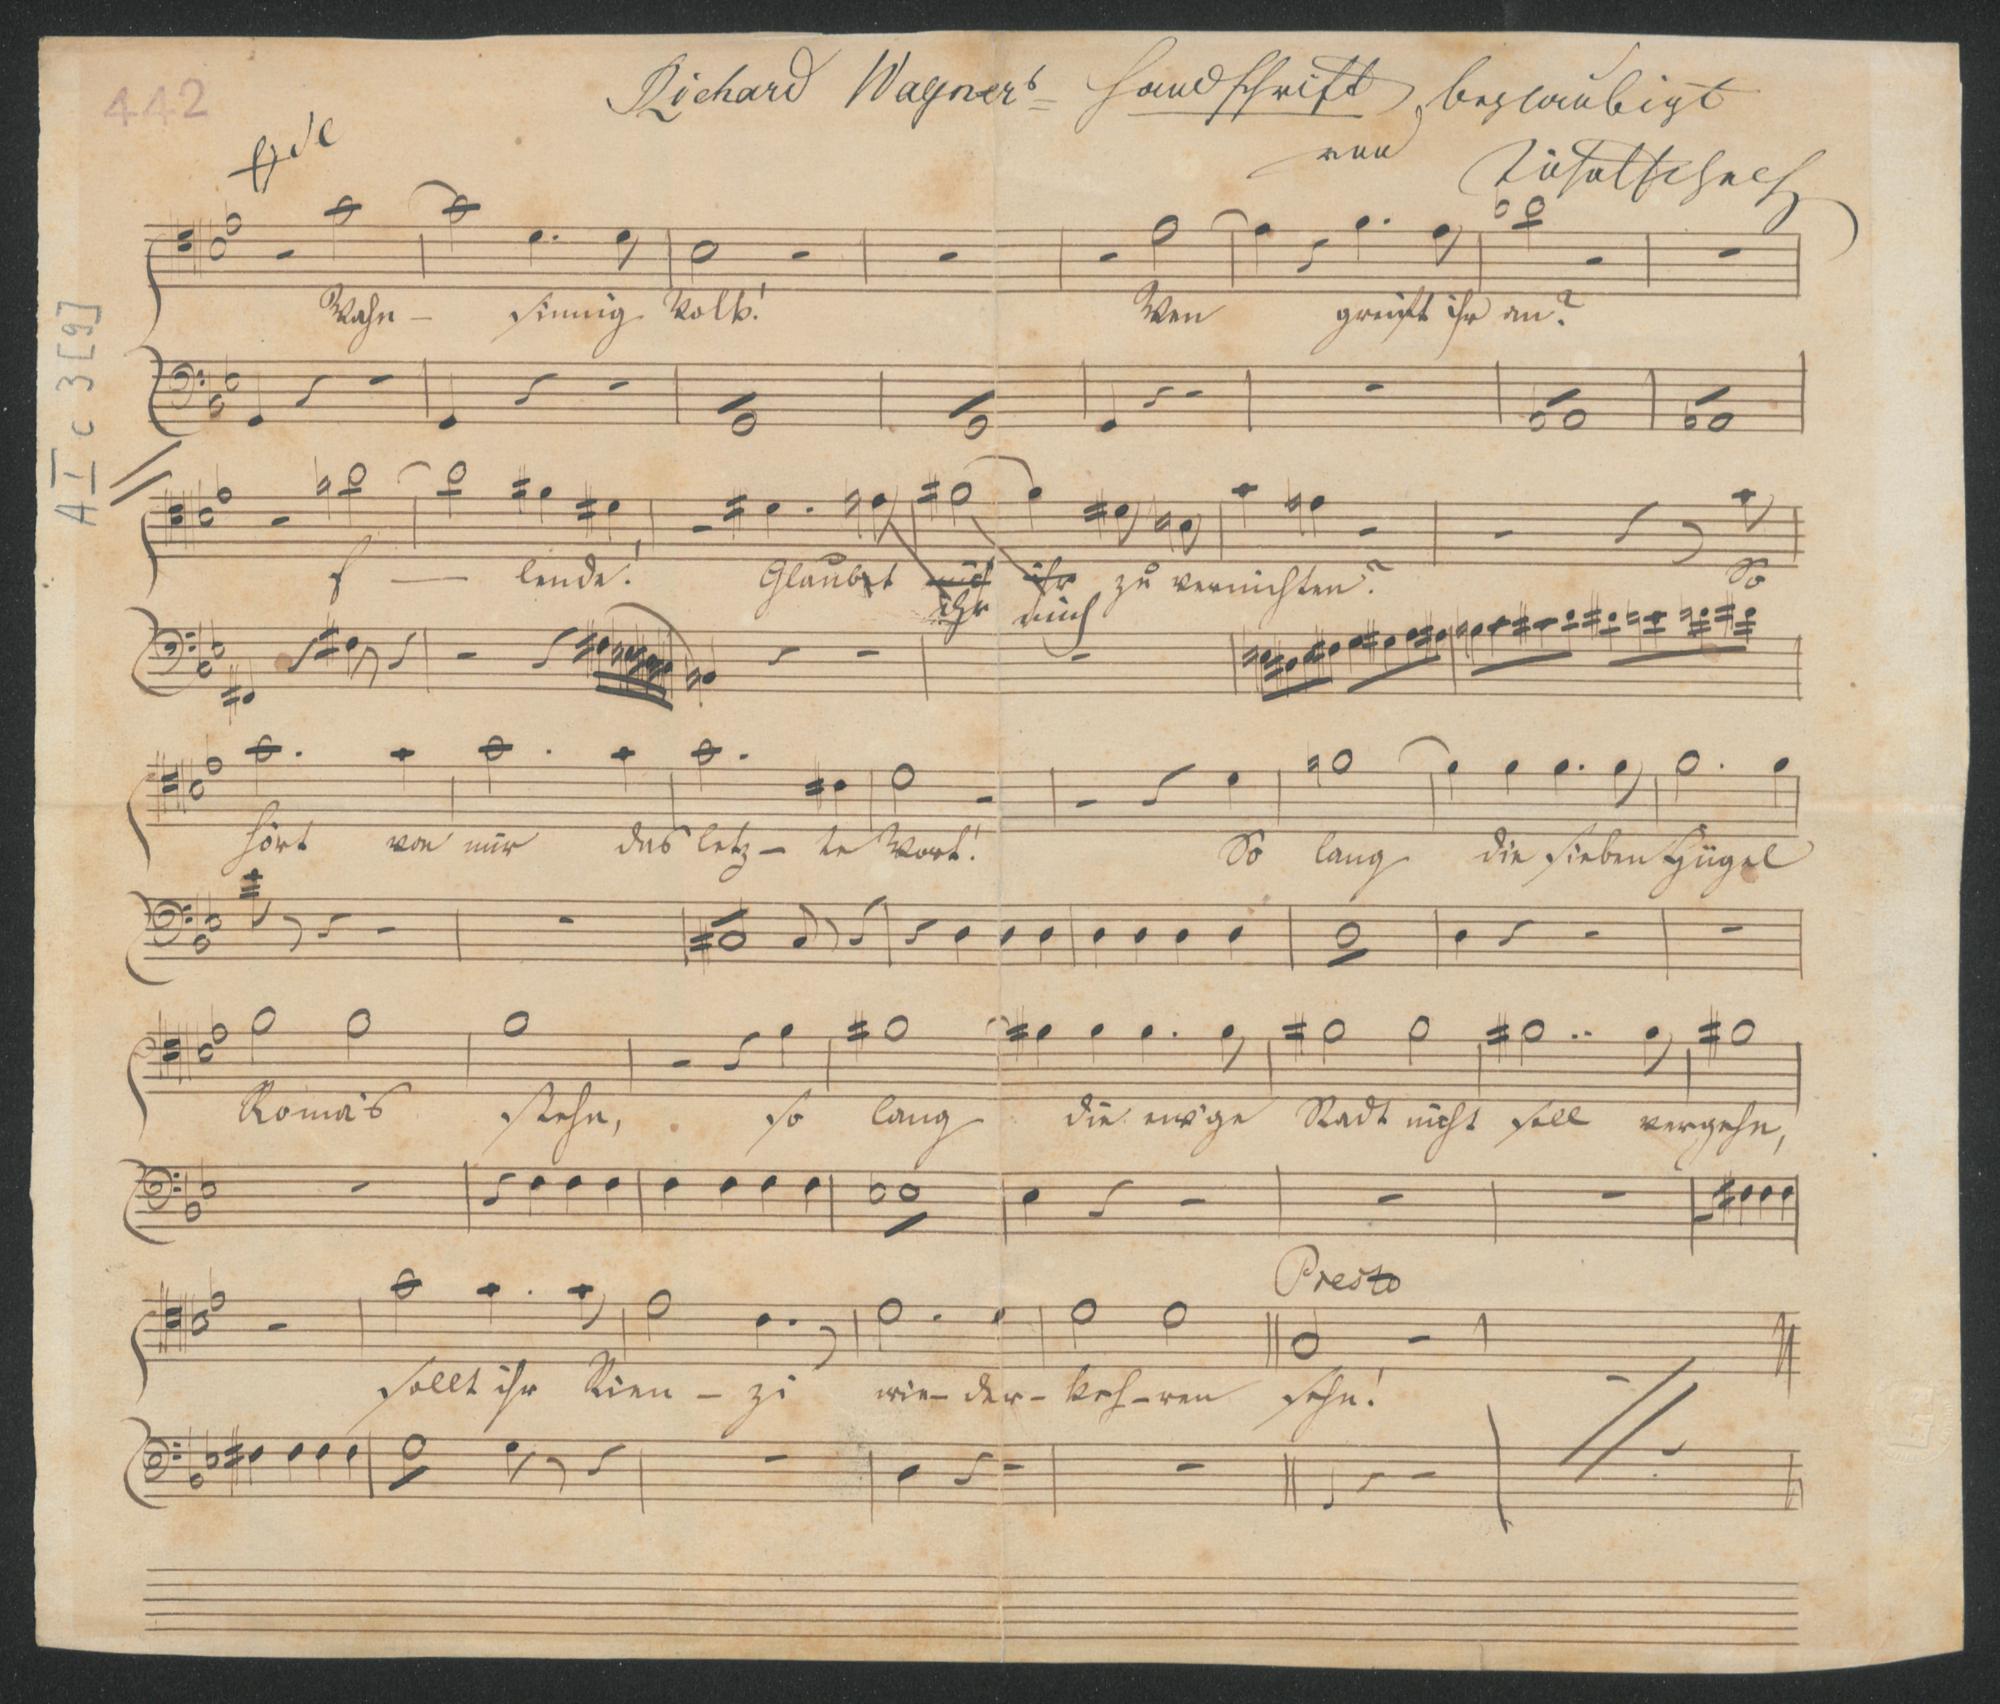 442
Richard Wagners Handschrift beglaubigt
von Tichatscheck
A I c 3 [9]
Wahn - sinnig Volk! Wen greift ihr an?
E - lende! Glaubt mich ihr zu vernichten? So
ihr mich
hört von mir das letz - te Wort! So lang die sieben Hügel
Roma's stehn, so lang die ew'ge Stadt nicht soll vergehn,
Presto
sollt ihr Rien - zi wie - der - keh - ren sehn!